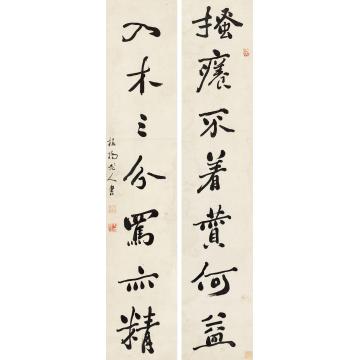 搔癢不着贊何益
入木三分罵亦精
老人書